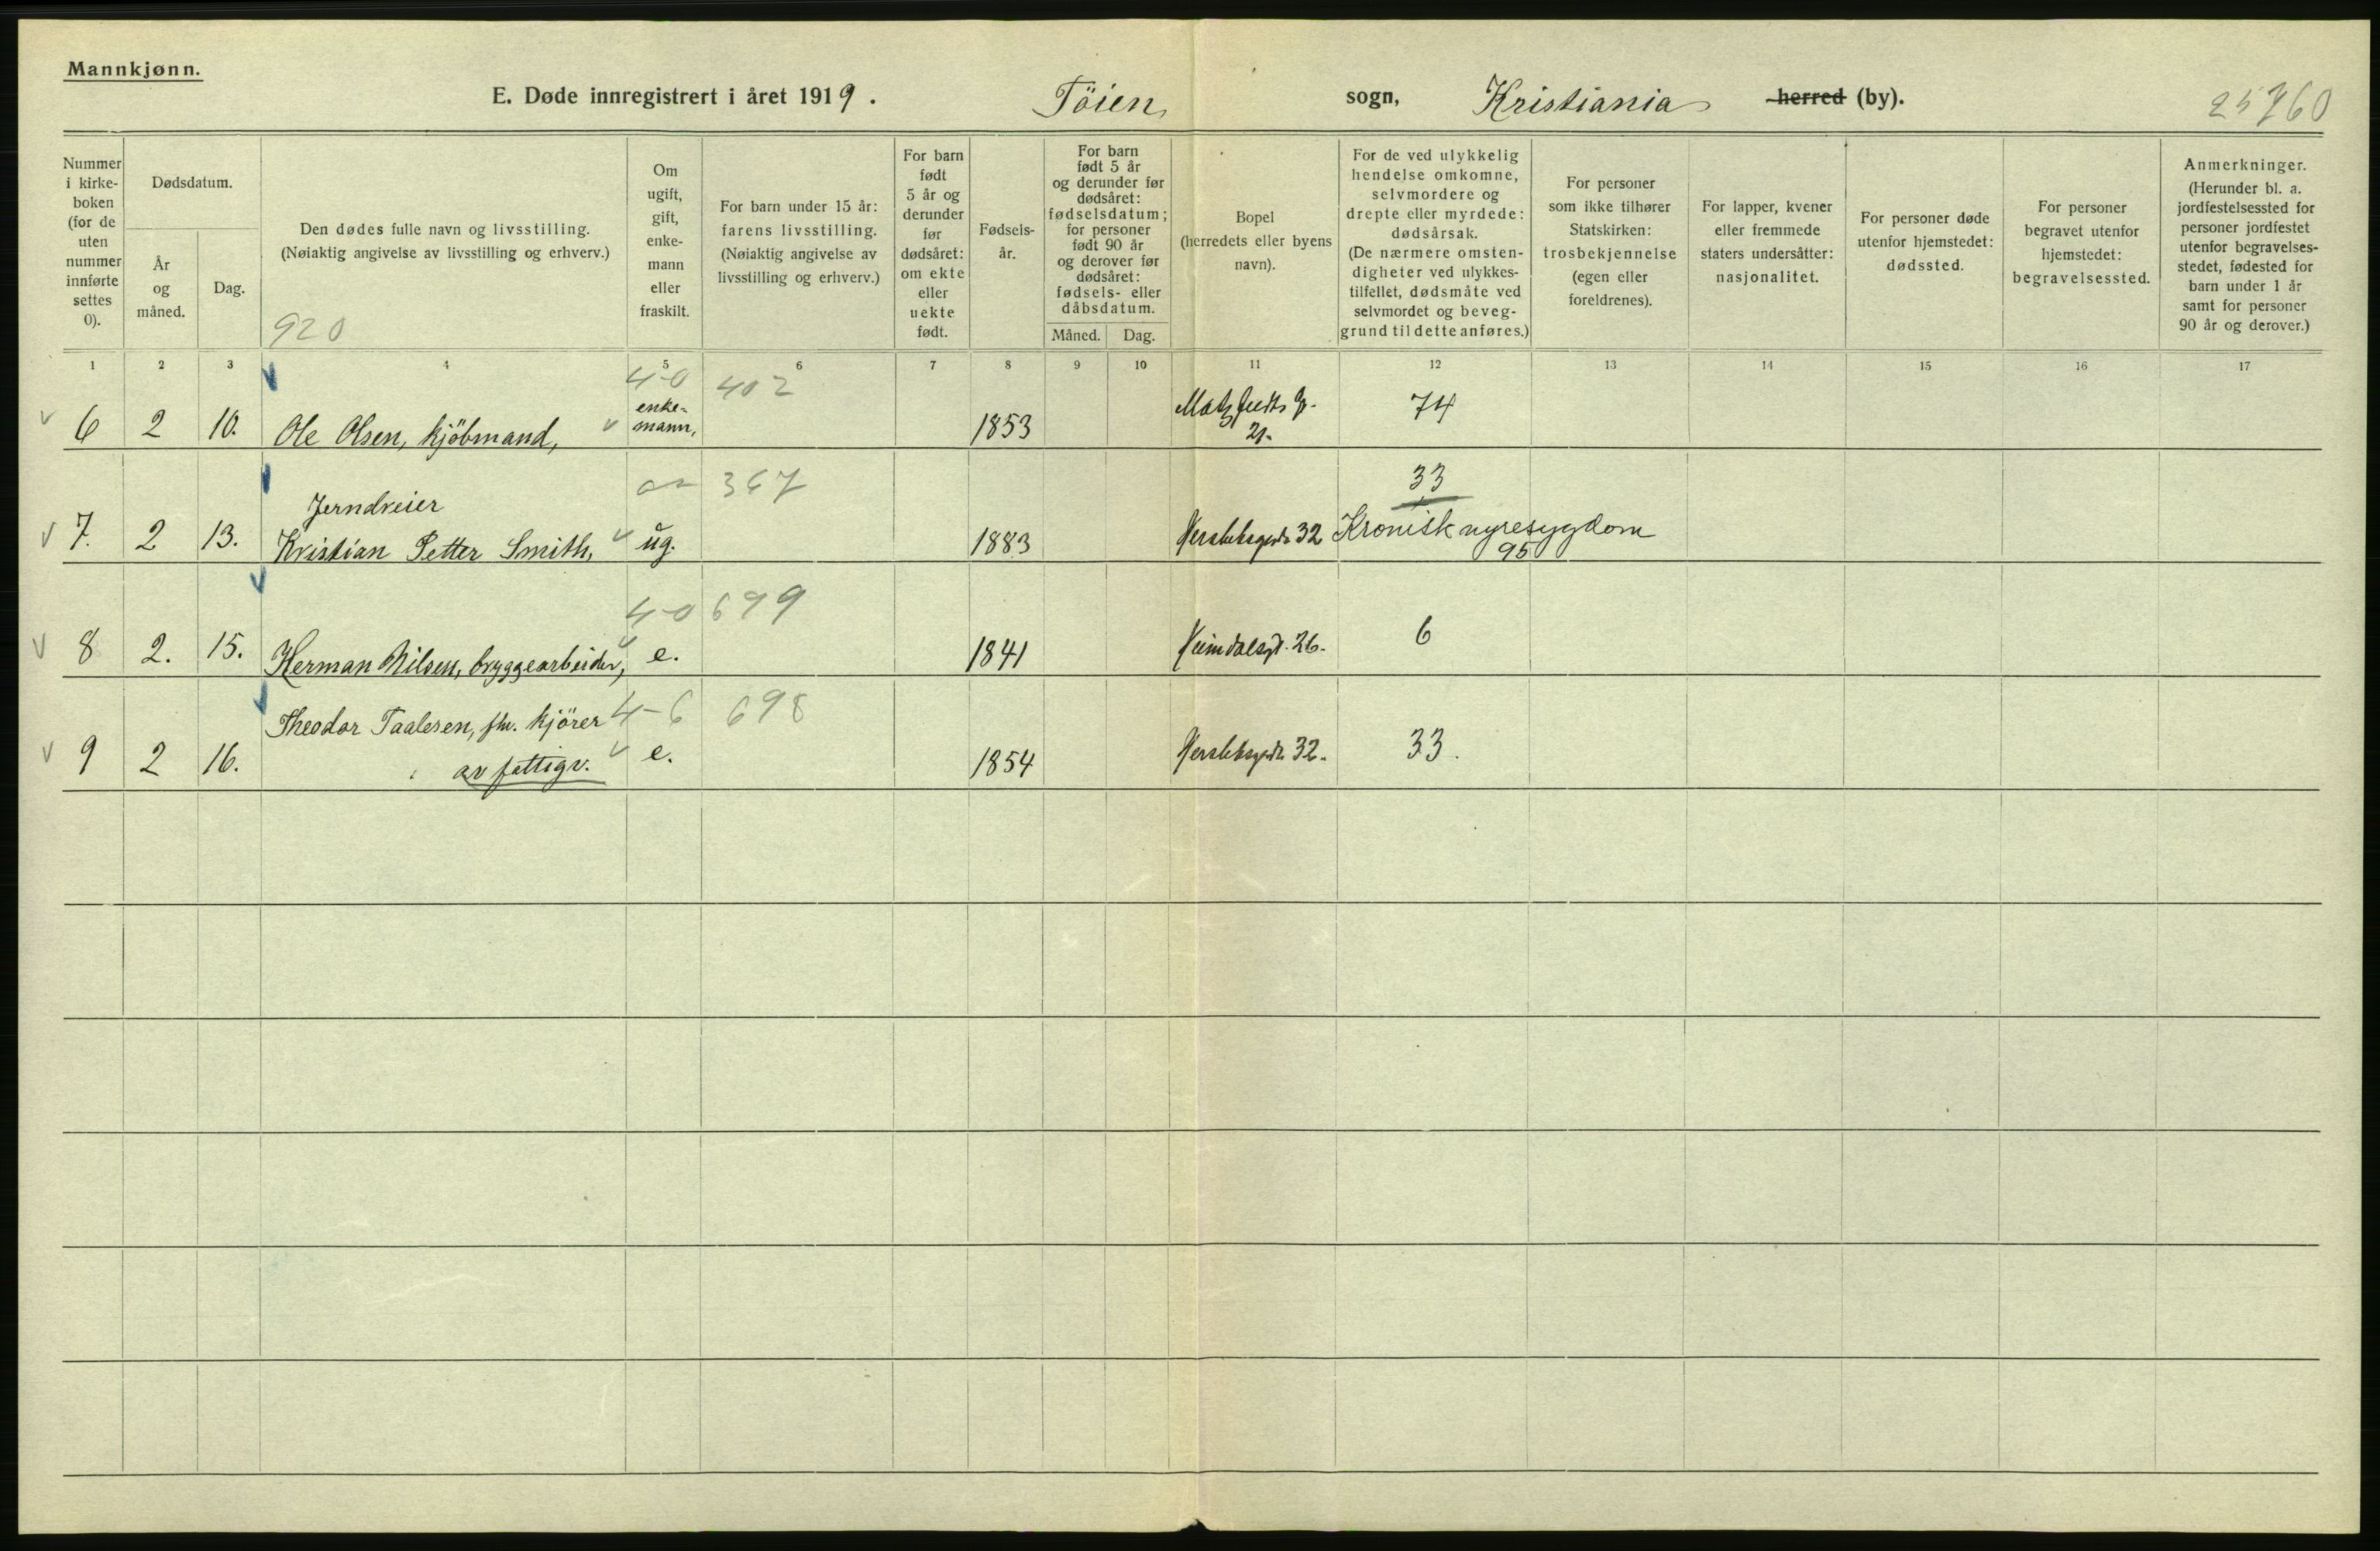 Mannkjønn.
E. Døde innregistrert i året 1919. Töien sogn, Kristiania herred (by). 25760
Nummer i kirke-boken (for de uten nummer innførte settes 0).
Dødsdatum.
År og måned.
Dag.
Den dødes fulle navn og livsstilling.
(Nøiaktig angivelse av livsstilling og erhverv.)
920
Om ugift, gift, enke-mann eller fraskilt.
For barn under 15 år: farens livsstilling.
(Nøiaktig angivelse av livsstilling og erhverv.)
For barn født 5 år og derunder før dødsåret: om ekte eller uekte født.
Fødsels-år.
For barn født 5 år og derunder før dødsåret: fødselsdatum; for personer født 90 år og derover før dødsåret: fødsels- eller dåbsdatum.
Måned. Dag.
Bopel (herredets eller byens navn).
For de ved ulykkelig hendelse omkomne, selvmordere og drepte eller myrdede: dødsårsak.
(De nærmere omsten-digheter ved ulykkes-tilfellet, dødsmåte ved selvmordet og beveg-grund til dette anføres.)
For personer som ikke tilhører Statskirken: trosbekjennelse (egen eller foreldrenes).
For lapper, kvener eller fremmede staters undersåtter: nasjonalitet.
For personer døde utenfor hjemstedet: dødssted.
For personer begravet utenfor hjemstedet: begravelsessted.
Anmerkninger.
(Herunder bl. a. jordfestelsessted for personer jordfestet utenfor begravelses-stedet, fødested for barn under 1 år samt for personer 90 år og derover.)
1 2 3 4 5 6 7 8 9 10 11 12 13 14 15 16 17
4-0 402
6 2 10. Ole Olsen, kjöbmand, enke-mann, 1853 21. 74
367 33
Jerndreier
7. 2 13. Kristian Petter Smith, ug. 1883 32 Kronisk nyresygdom
95
4-0 699
8 2. 15. Herman Nilsen, bryggearbeider, e. 1841 Heimdalsgt. 26. 6
4-6 698
Theodor Taalesen, fhv. kjörer
9 2 16. av fattigv. e. 1854 32. 33.